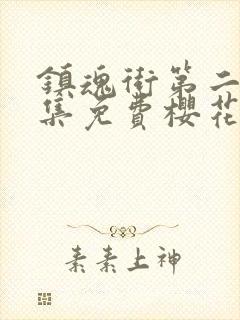 鎮魂街第二
集免費櫻花
素素上神